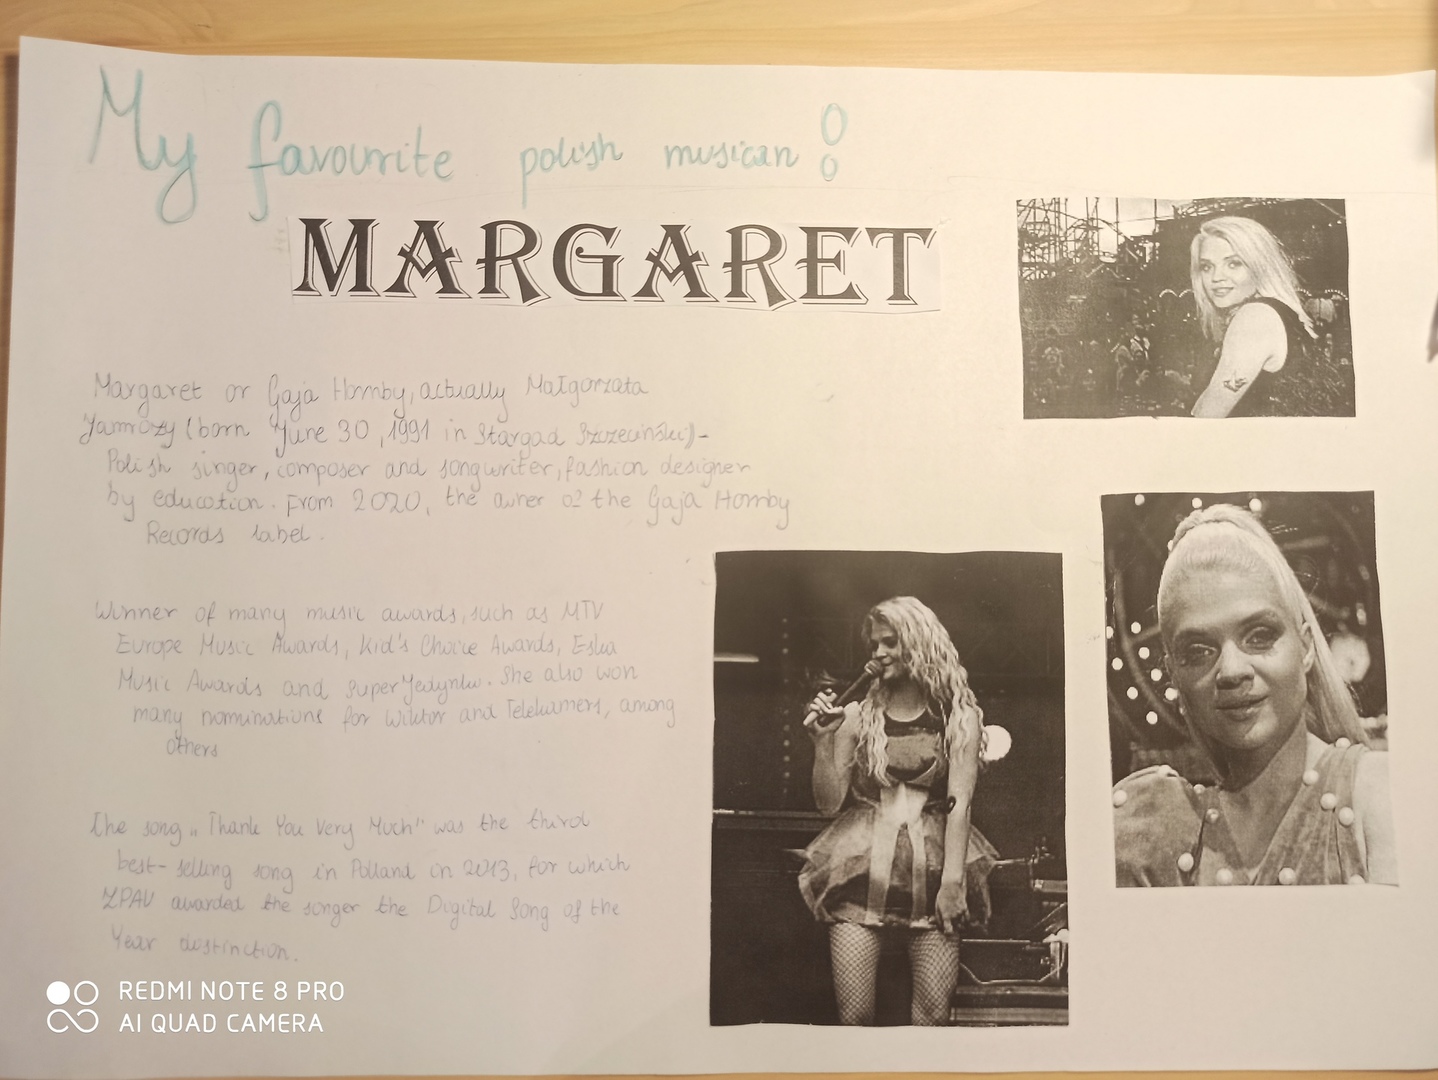 My favourite polish musican!
MARGARET
Margaret or Gaja Hornby, actually Małgorzata
Jamroży (born June 30, 1991 in Stargad Szczeciński) -
Polish singer, composer and songwriter, fashion designer
by education. From 2020, the owner of the Gaja Hornby
Records label.
Winner of many music awards, such as MTV
Europe Music Awards, Kid's Choice Awards, Eska
Music Awards and SuperJedynki. She also won
many nominations for Wiktor and Telekamers, among
others
The song „Thank You Very Much" was the third
best-selling song in Polland in 2013, for which
ZPAV awarded the songer the Digital Song of the
Year distinction.
REDMI NOTE 8 PRO
AI QUAD CAMERA